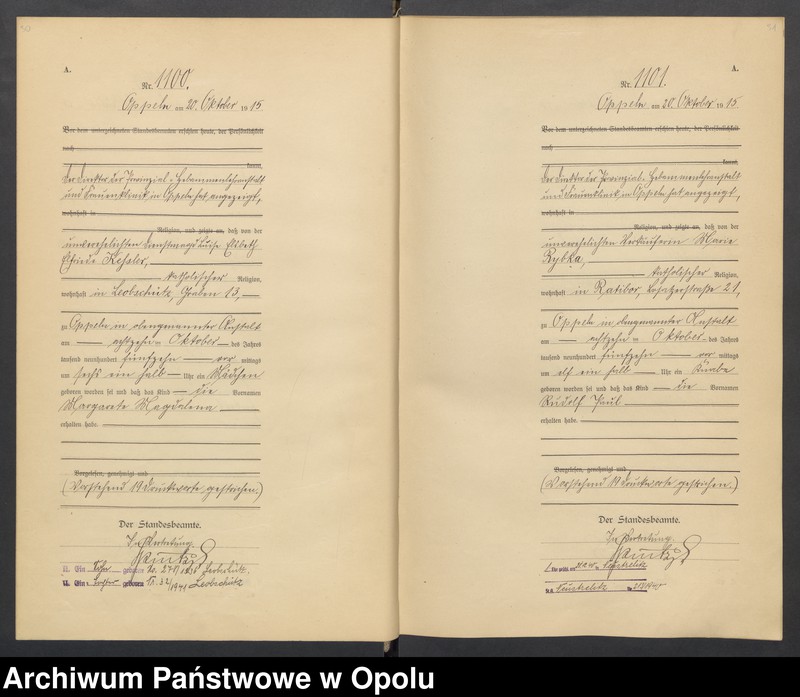 A.
Nr. 1100.
Oppeln am 20. Oktober 1915.
Vor dem unterzeichneten Standesbeamten erschien heute, der Persönlichkeit
nach
kannt,
Der Direktor der Provinzial-Hebammenlehranstalt
und Frauenklinik in Oppeln hat angezeigt,
wohnhaft in
Religion, und zeigte an, daß von der
unverehelichten Dienstmagd Luise Elsbeth
Elfriede Kessler,
katholischer Religion,
wohnhaft in Leobschütz, Graben 13,
zu Oppeln in obengenannter Anstalt
am achtzehnten Oktober des Jahres
tausend neunhundert fünfzehn vor mittags
um sechs ein halb Uhr ein Mädchen
geboren worden sei und daß das Kind die Vornamen
Margarete Magdalena
erhalten habe.
Vorgelesen, genehmigt und
(Vorstehend 19 Druckworte gestrichen.)
Der Standesbeamte.
In Vertretung.
geboren Leobschütz.
geboren Leobschütz
A.
Nr. 1101.
Oppeln am 20. Oktober 1915
Vor dem unterzeichneten Standesbeamten erschien heute, der Persönlichkeit
nach
kannt,
Der Direktor der Provinzial-Hebammenlehranstalt
und Frauenklinik in Oppeln hat angezeigt,
wohnhaft in
Religion, und zeigte an, daß von der
unverehelichten Verkäuferin Marie
Rybka,
katholischer Religion,
wohnhaft in Ratibor, 21,
zu Oppeln in obengenannter Anstalt
am achtzehnten Oktober des Jahres
tausend neunhundert fünfzehn vor mittags
um elf ein halb Uhr ein Knabe
geboren worden sei und daß das Kind die Vornamen
Rudolf Paul
erhalten habe.
Vorgelesen, genehmigt und
(Vorstehend 19 Druckworte gestrichen.)
Der Standesbeamte.
In Vertretung.
Archiwum Państwowe w Opolu